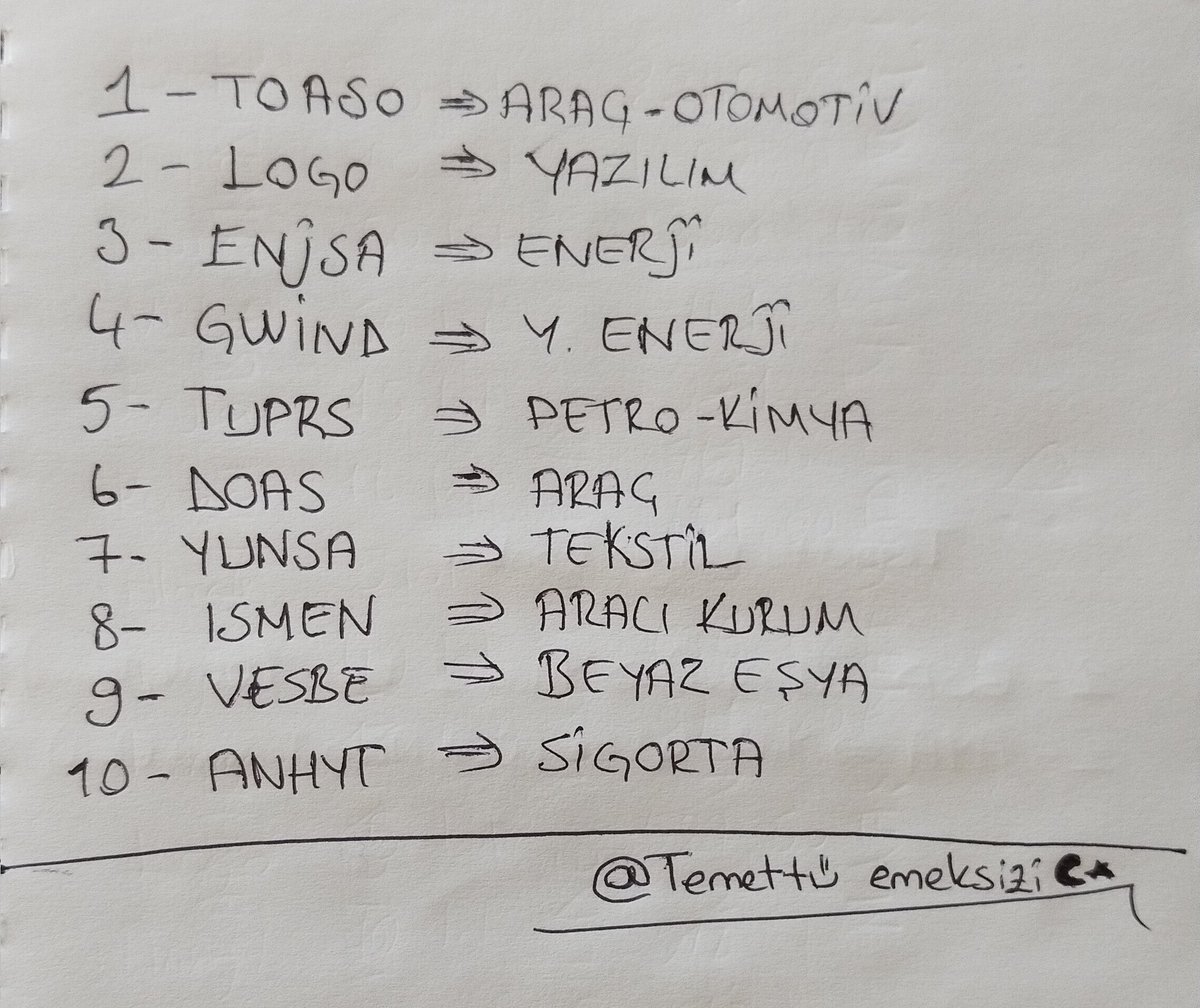 1 - TOASO ⇒ ARAÇ - OTOMOTİV
2 - LOGO ⇒ YAZILIM
3 - ENJSA ⇒ ENERJİ
4 - GWİND ⇒ Y. ENERJİ
5 - TUPRS ⇒ PETRO - KİMYA
6 - DOAS ⇒ ARAÇ
7 - YUNSA ⇒ TEKSTİL
8 - ISMEN ⇒ ARACI KURUM
9 - VESBE ⇒ BEYAZ EŞYA
10 - ANHYT ⇒ SİGORTA
@Temettü emeksizi